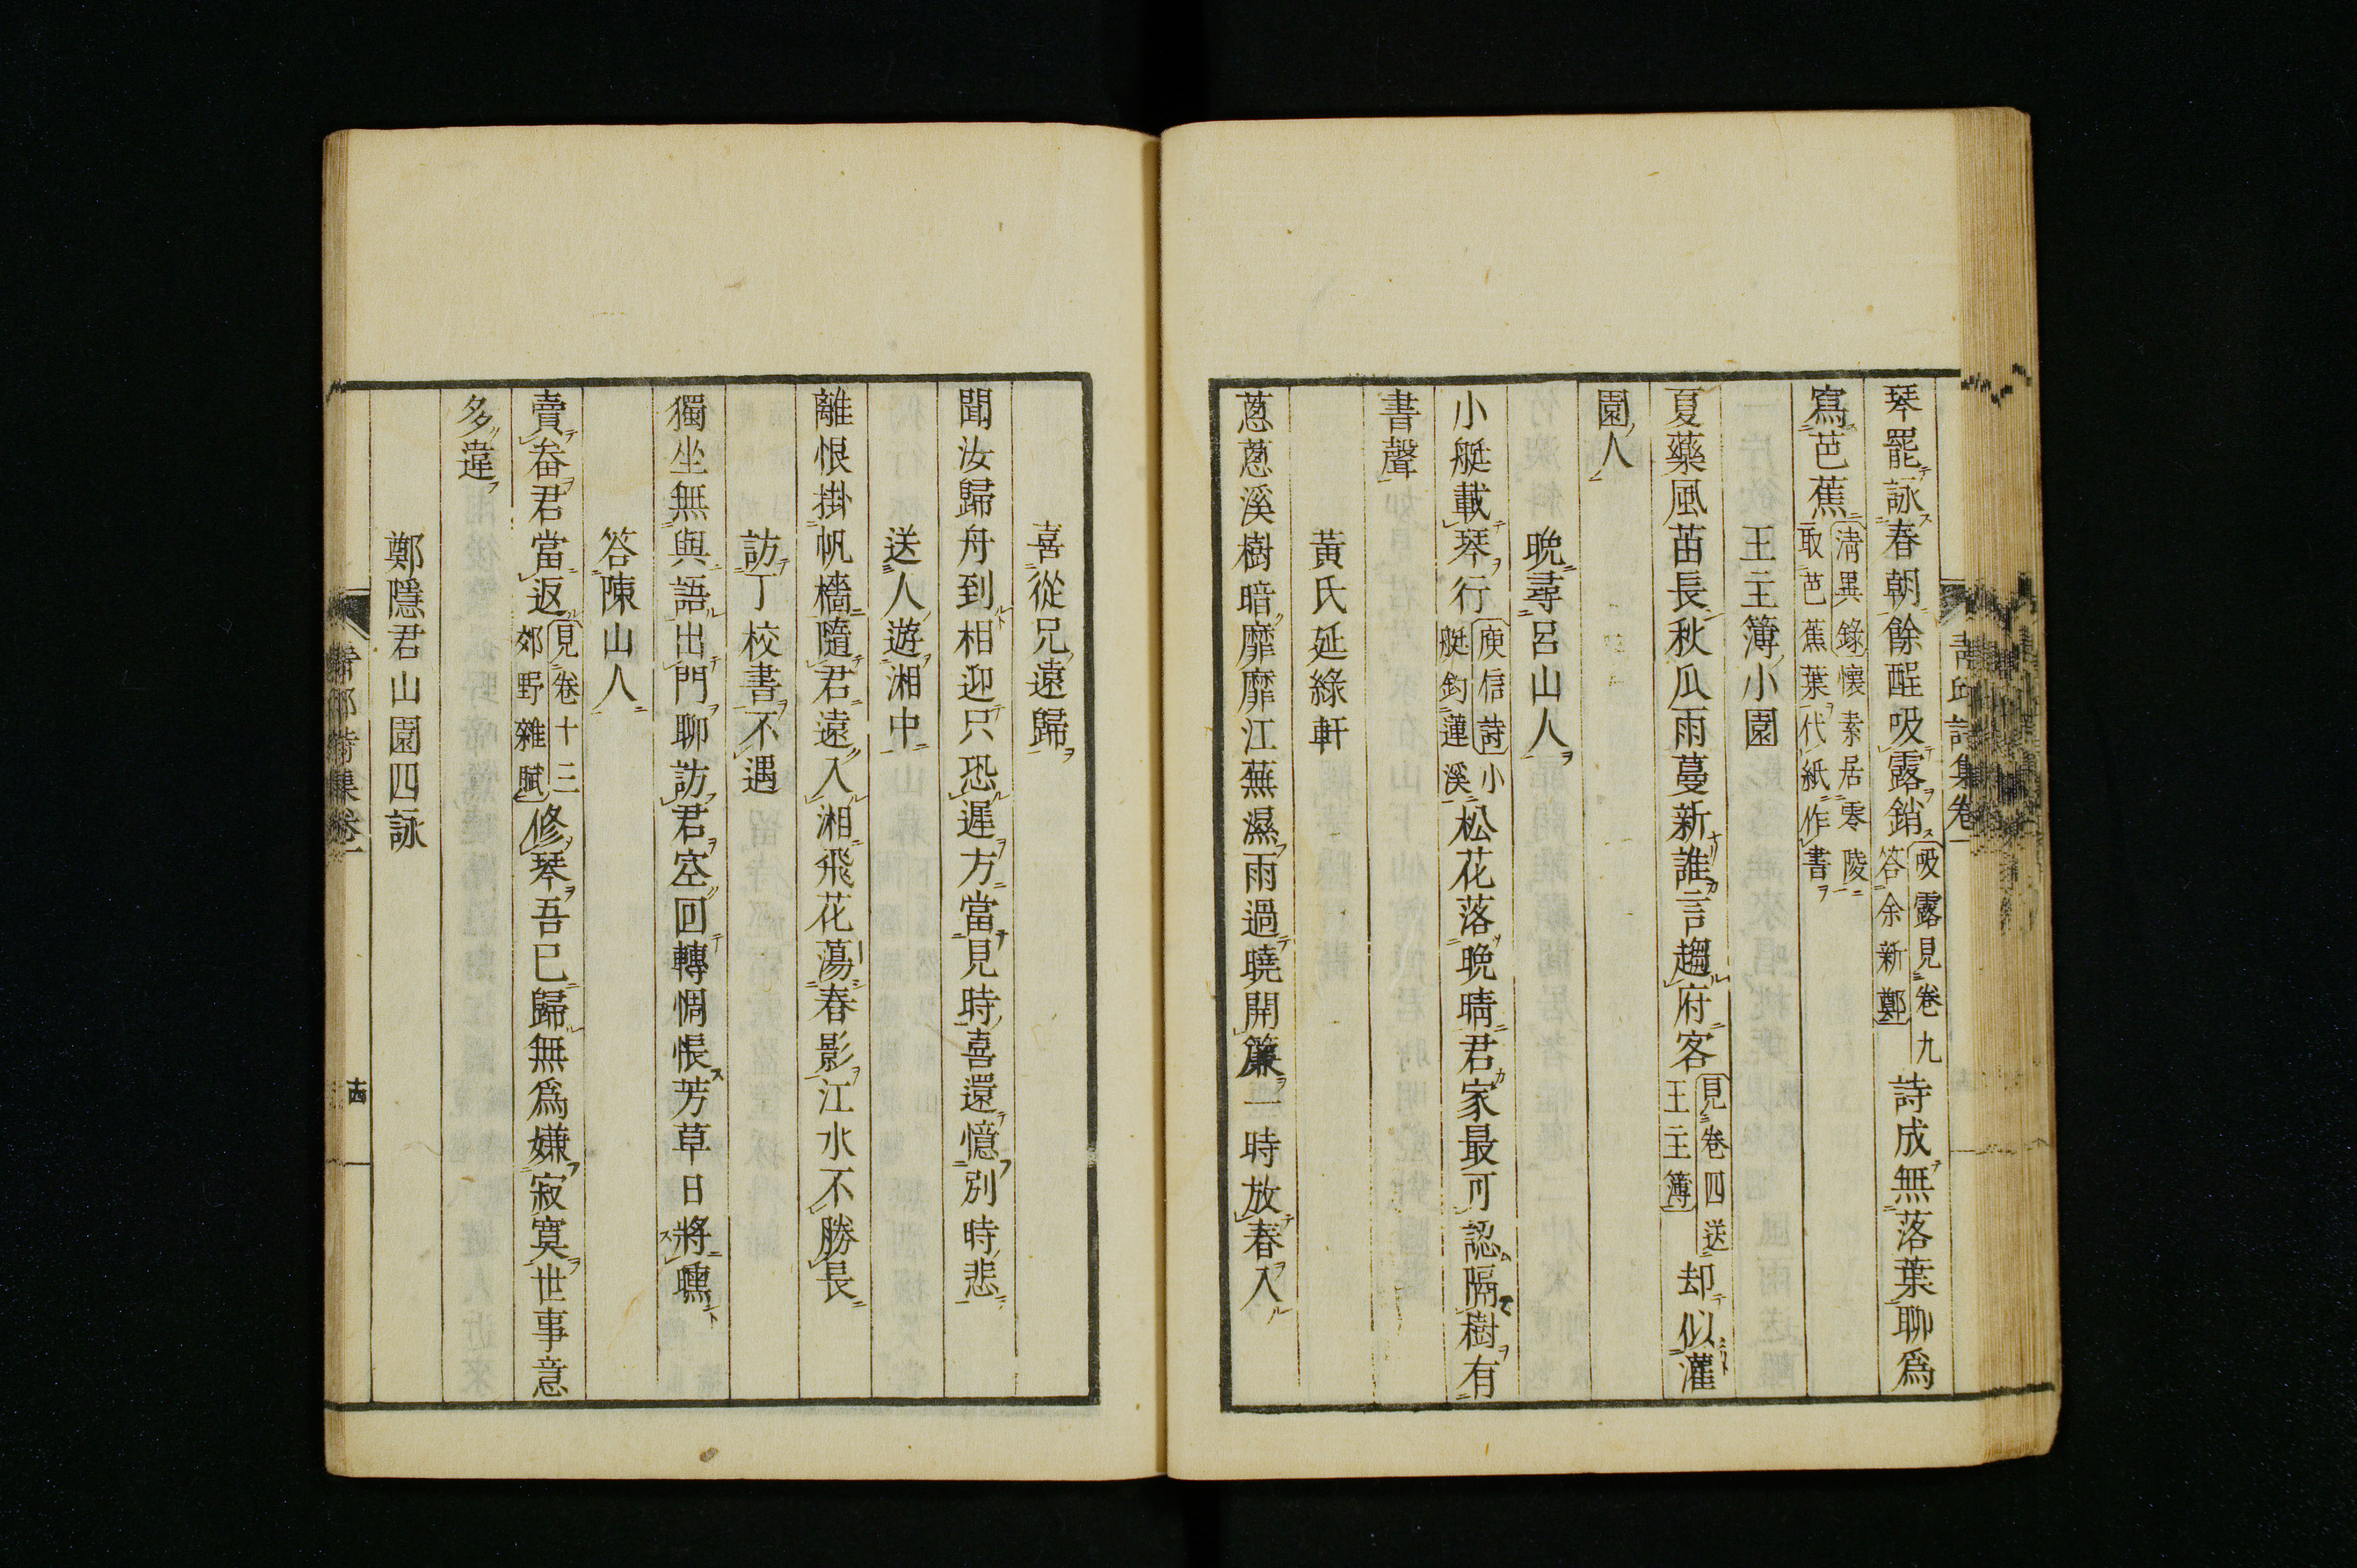 琴罷詠春朝餘酲吸露銷吸露見卷九答余新鄭詩成無落葉聊爲
寫芭蕉清異錄懷素居零陵取芭蕉葉代紙作書
王主簿小園
夏藥風苗長秋瓜雨蔓新誰言趨府客見卷四送王主簿却似灌
園人
晩尋呂山人
小艇載琴行庾信詩小艇釣蓮溪松花落晩晴君家最可認隔樹有
書聲
黃氏延綠軒
葱葱溪樹暗靡靡江蕪濕雨過曉開簾一時放春入
喜從兄遠歸
聞汝歸舟到相迎只恐遲方當見時喜還憶別時悲
送人遊湘中
離恨掛帆檣隨君遠入湘飛花蕩春影江水不勝長
訪丁校書不遇
獨坐無與語出門聊訪君空回轉惆悵芳草日將曛
答陳山人
賣畚君當返見卷十二郊野雜賦修琴吾已歸無爲嫌寂寞世事意
多違
鄭隱君山園四詠
青邱詩集卷一
十四